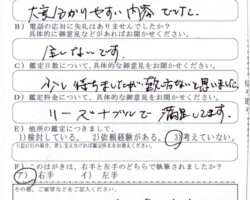 大変分かりやすい内容でした。
B）電話の応対に失礼はありませんでしたか？
具体的に御意見などがあればお聞かせください。
全くないです。
C）鑑定日数について、具体的な御意見をお聞かせください。
少し待ちましたが仕方ないと思いました。
D）鑑定料金について、具体的な御意見をお聞かせください。
リーズナブルで満足してます。
E）他所の鑑定につきまして。
1）検討している。2）依頼経験がある。3）考えていない。
F）このはがきは、右手と左手のどちらで執筆されましたか？
ア）右手　イ）左手
その他、ご要望などをご記入ください。